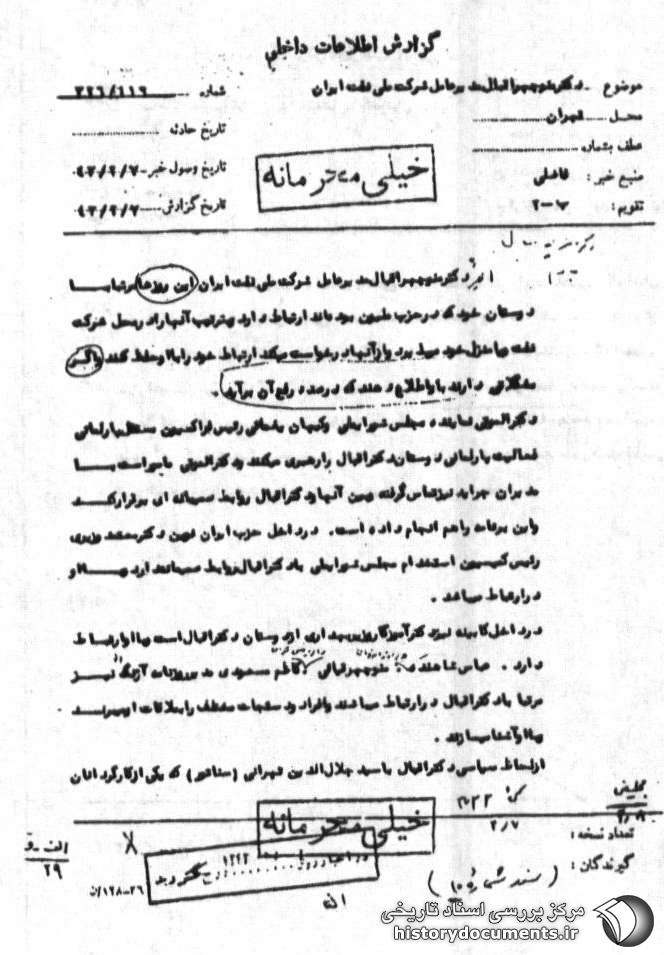 گزارش اطلاعات داخلی
موضوع - دکتر منوچهر اقبال مدیرعامل شرکت ملی نفت ایران
شماره ۳۲۶/۱۱۶
محل تهران
تاریخ حادثه
عطف بشماره
منبع خبر: فاضلی
تاریخ وصول خبر ۴۳/۲/۷
تقویم: ب-۲
تاریخ گزارش ۴۳/۲/۷
خیلی محرمانه
دکتر منوچهر اقبال مدیرعامل شرکت ملی نفت ایران این روزها مرتبا با
دوستان خود که در حزب ملیون بوده‌اند ارتباط دارد و بترتیب آنها را در محل شرکت
نفت و یا منزل خود میپذیرد و از آنها درخواست میکند ارتباط خود را با او حفظ کنند و اگر
مشکلاتی دارند باو اطلاع دهند که درصدد رفع آن برآید.
دکتر الموتی نماینده مجلس شورایملی و کیهان یغمائی رئیس فراکسیون مستقل پارلمانی
فعالیت پارلمانی دوستان دکتر اقبال را رهبری میکنند دکتر الموتی مامور است با
مدیران جراید نیز تماس گرفته و بین آنها و دکتر اقبال روابط صمیمانه‌ای برقرار کند
و این برنامه را هم انجام داده است. در داخل حزب ایران نوین دکتر سعید وزیری
رئیس کمیسیون استخدام مجلس شورایملی با دکتر اقبال روابط صمیمانه دارد و با او
در ارتباط میباشد.
در داخل کابینه نیز دکتر آموزگار وزیر بهداری از دوستان دکتر اقبال است و با او ارتباط
دارد. عباس شاهنده، منوچهر قبائی، کاظم مسعودی مدیر روزنامه آژنگ نیز
مرتبا با دکتر اقبال در ارتباط میباشند و افراد و دستجات مختلف را بملاقات او میبرند
و با او آشنا میسازند.
ارتباط سیاسی دکتر اقبال با سید جلال الدین تهرانی (سناتور) که یکی از کارگردانان
خیلی محرمانه
۲/۷
تعداد نسخه:
گیرندگان:
الف-ق
۲۹
۱۳۴۳
۲۶-۱۹۸/ان
مرکز بررسی اسناد تاریخی
historydocuments.ir